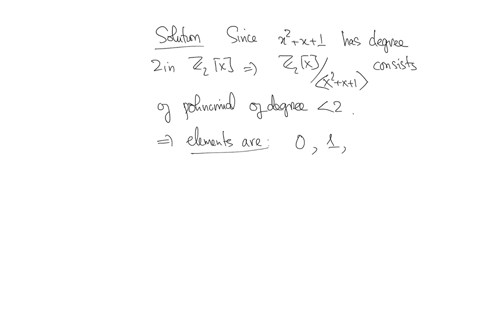 Solution Since x²+x+1 has degree
2 in ℤ₂[x] ⇒ ℤ₂[x]/⟨x²+x+1⟩ consists
of polinomial of degree <2.
⇒ elements are: 0, 1,